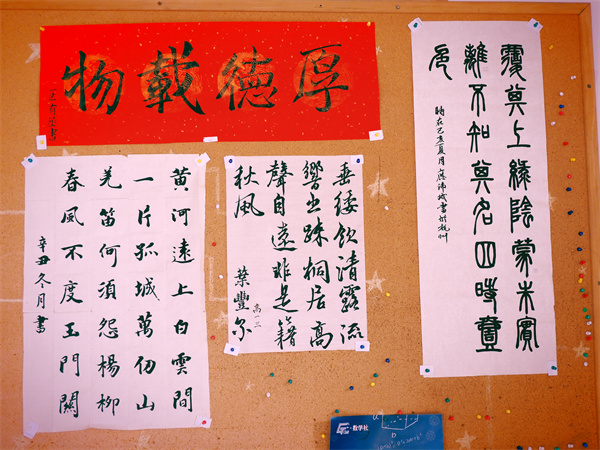 厚德載物
黄河遠上白雲間
一片孤城萬仞山
羌笛何須怨楊柳
春風不度玉門關
辛丑冬月書
垂緌飲清露流
響出疎桐居高
聲自遠非是籍
秋風
高一三
葉豐尔
其上綠陰蒙
離不知其名四時壹
色
時在己亥夏月 書於杭州
数学社